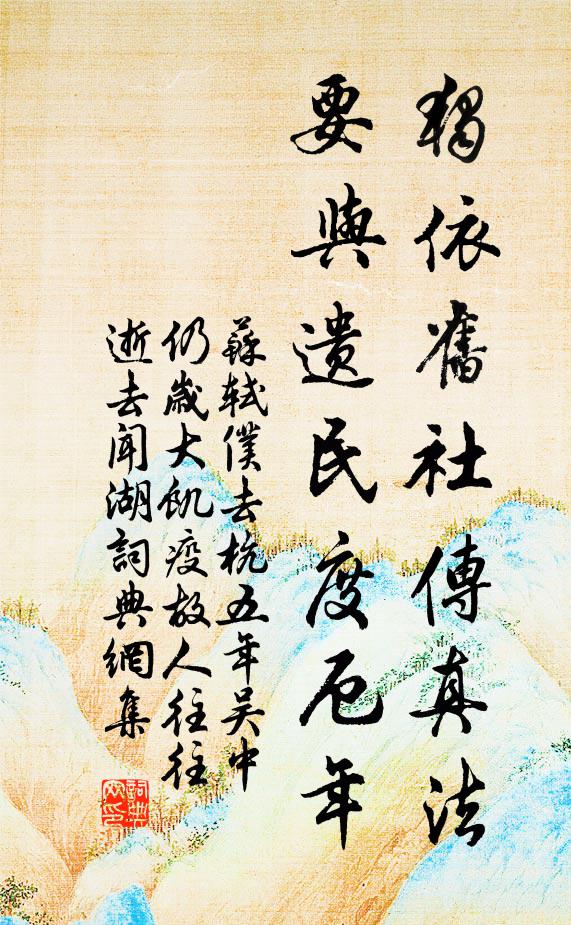 獨依舊社傳真法
要與遺民度厄年
蘇軾僕去杭五年吳中
仍歲大飢疫故人往往
逝去聞湖詞典網集
詞典文印